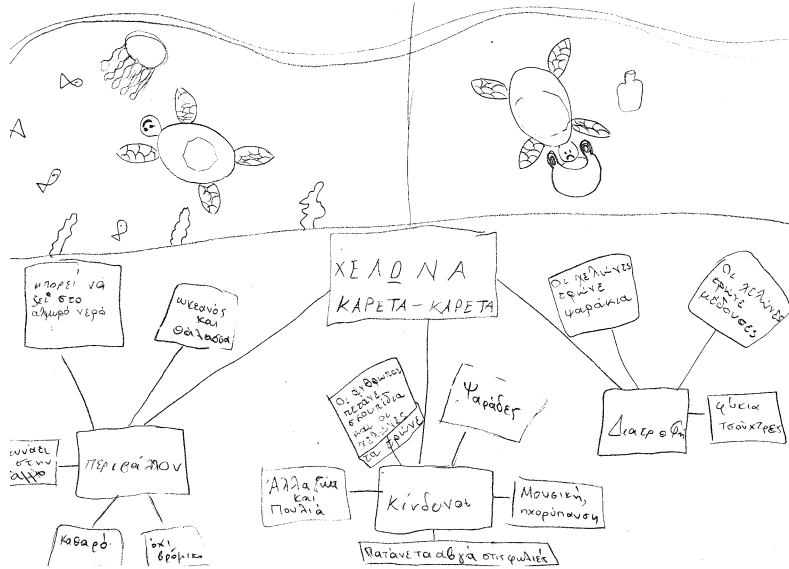 ΧΕΛΩΝΑ
ΚΑΡΕΤΑ-ΚΑΡΕΤΑ
μπορεί να
ζει στο
αλμυρό νερό
ωκεανός
και
θάλασσα
Περιβάλλον
γεννάει
στην
άμμο
καθαρό
όχι
βρόμικο
Οι άνθρωποι
πετάνε
σκουπίδια
και οι
χελώνες
τα τρώνε
Ψαράδες
Κίνδυνοι
Άλλα ζώα
και
Πουλιά
Μουσική,
ηχορύπανση
Πατάνε τα αβγά στις φωλιές
Οι χελώνες
τρώνε
ψαράκια
Οι χελώνες
τρώνε
μέδουσες
Διατροφή
φύκια
τσούχτρες